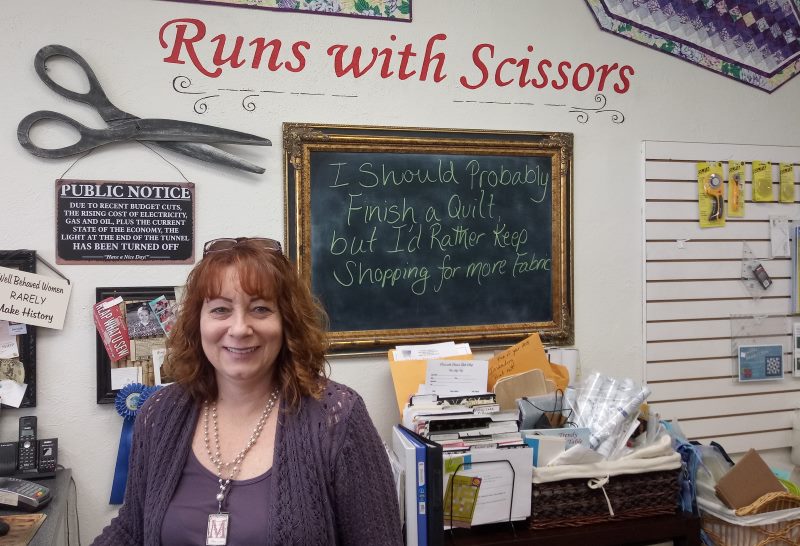 Runs with Scissors
PUBLIC NOTICE
DUE TO RECENT BUDGET CUTS,
THE RISING COST OF ELECTRICITY,
GAS AND OIL, PLUS THE CURRENT
STATE OF THE ECONOMY, THE
LIGHT AT THE END OF THE TUNNEL
HAS BEEN TURNED OFF
"Have a Nice Day!"
I Should Probably
Finish a Quilt,
but I'd Rather Keep
Shopping for more Fabric
Well Behaved Women
RARELY
Make History
REAP WHAT U SEW
Trendy
Table
M